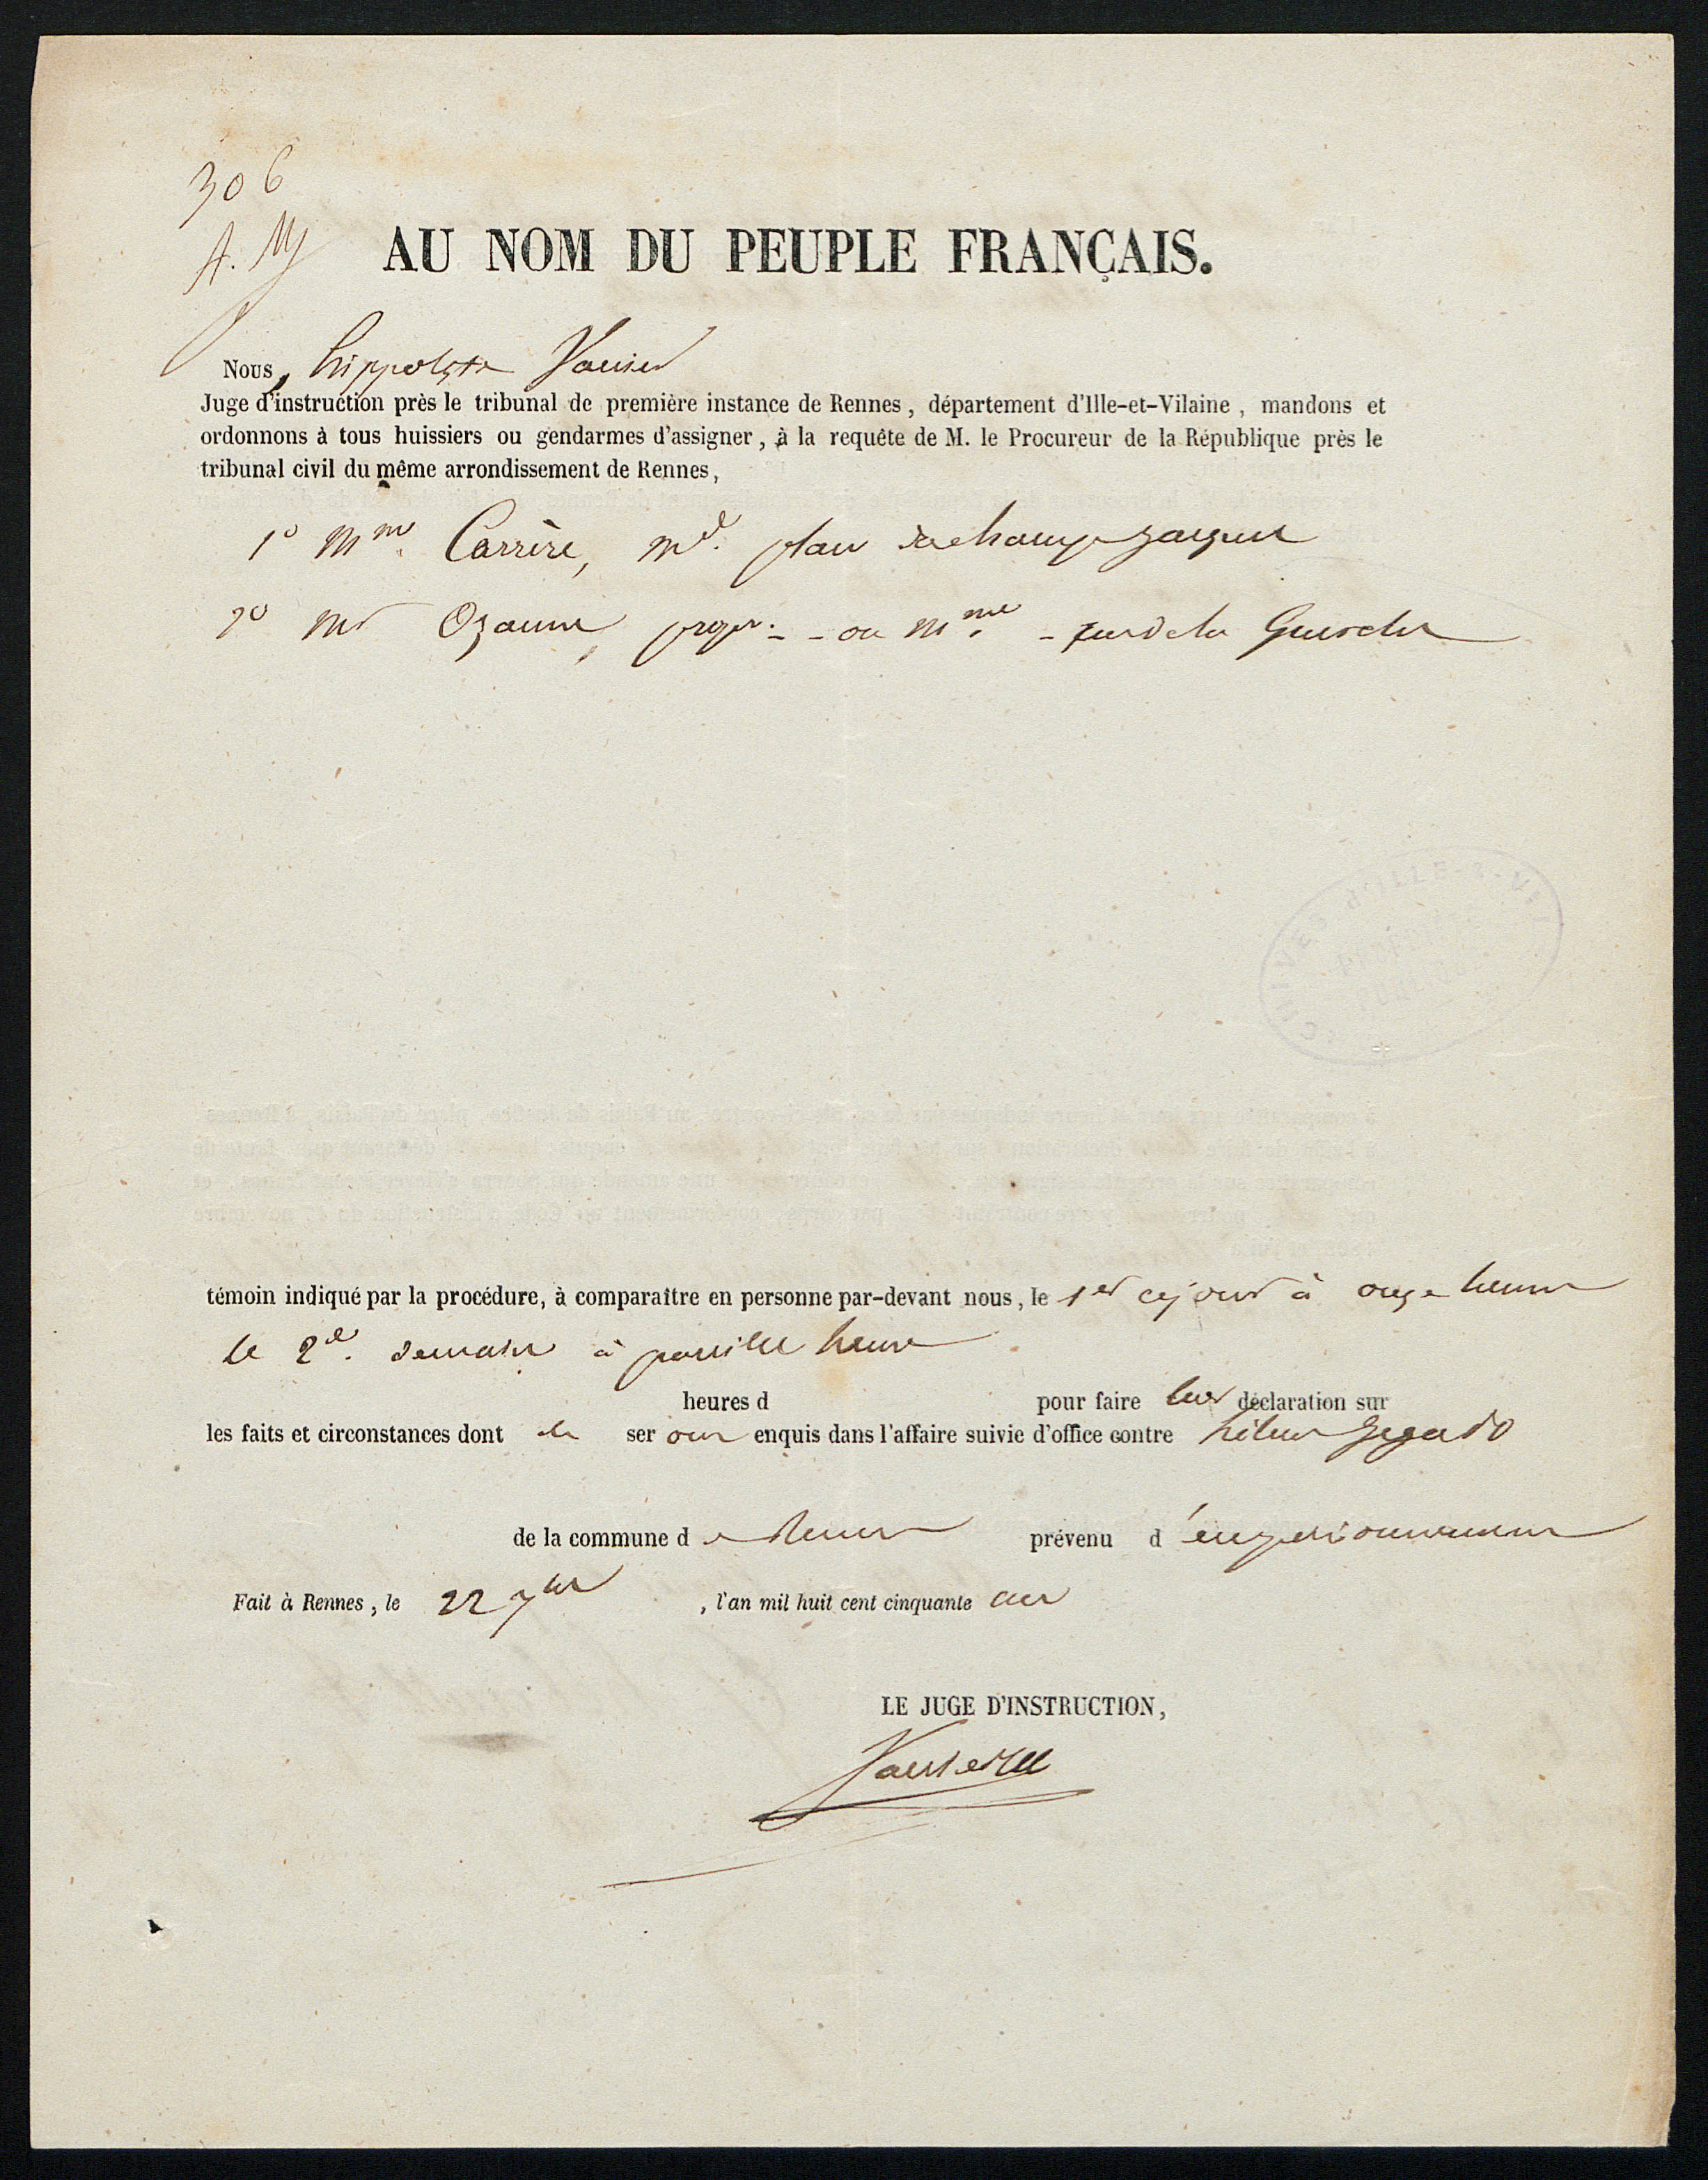 306
A. M
AU NOM DU PEUPLE FRANÇAIS.
Nous, hippolyte Vannier
Juge d'instruction près le tribunal de première instance de Rennes, département d'Ille-et-Vilaine, mandons et
ordonnons à tous huissiers ou gendarmes d'assigner, à la requête de M. le Procureur de la République près le
tribunal civil du même arrondissement de Rennes,
1° Mme Carrère, md. place du champ jacquet
2° Mr Ozanne, propr. - ou Mme - rue de la Guerche
témoin indiqué par la procédure, à comparaître en personne par-devant nous, le 1er ce jour à onze heures
le 2d. demain à pareille heure
heures d pour faire leur déclaration sur
les faits et circonstances dont ils ser ont enquis dans l'affaire suivie d'office contre hélène Jegado
de la commune de Rennes prévenu d'empoisonnement
Fait à Rennes, le 22 7bre, l'an mil huit cent cinquante un
LE JUGE D'INSTRUCTION,
Vannier